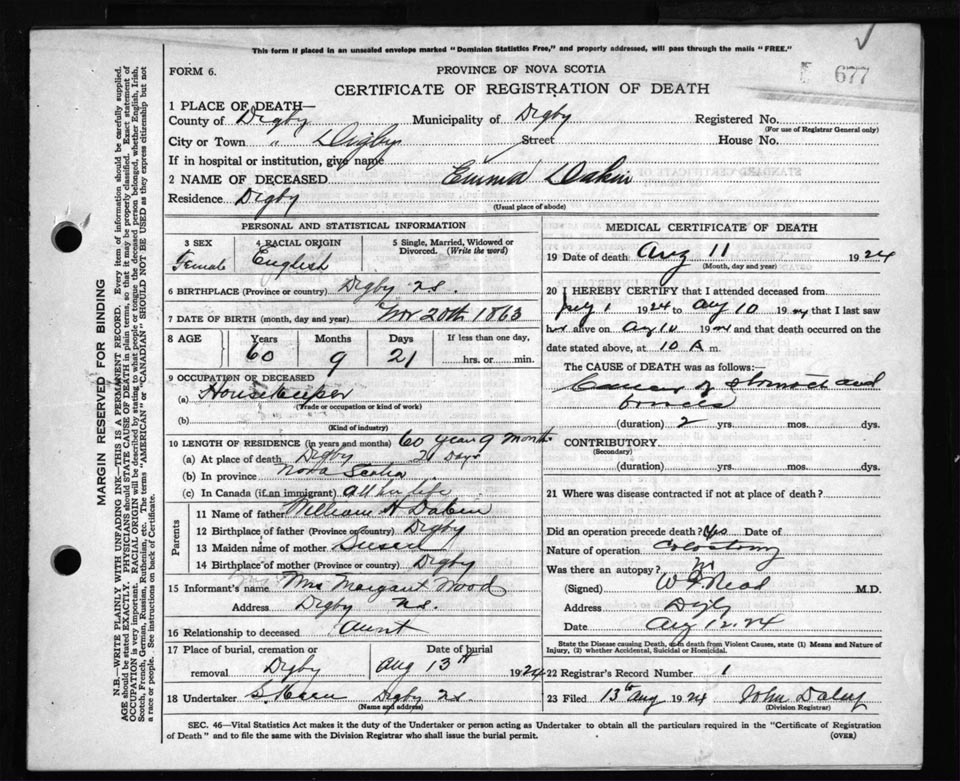 This form if placed in an unsealed envelope marked "Dominion Statistics Free," and properly addressed, will pass through the mails "FREE."
FORM 6.
PROVINCE OF NOVA SCOTIA
677
CERTIFICATE OF REGISTRATION OF DEATH
1 PLACE OF DEATH—
County of Digby Municipality of Digby Registered No.
(For use of Registrar General only)
City or Town " Digby Street House No.
If in hospital or institution, give name
2 NAME OF DECEASED Emma Dakin
Residence Digby
(Usual place of abode)
PERSONAL AND STATISTICAL INFORMATION
3 SEX 4 RACIAL ORIGIN 5 Single, Married, Widowed or Divorced. (Write the word)
Female English
6 BIRTHPLACE (Province or country) Digby N.S.
7 DATE OF BIRTH (month, day and year) Nov 20th 1863
8 AGE Years Months Days If less than one day,
60 9 21 hrs. or min.
9 OCCUPATION OF DECEASED
(a) Housekeeper
(Trade or occupation or kind of work)
(b)
(Kind of industry)
10 LENGTH OF RESIDENCE (in years and months) 60 years 9 months
(a) At place of death Digby 21 Days
(b) In province Nova Scotia
(c) In Canada (if an immigrant) All her life
Parents
11 Name of father William H Dakin
12 Birthplace of father (Province or country) Digby
13 Maiden name of mother
14 Birthplace of mother (Province or country) Digby
15 Informant's name Mrs Margaret Wood
Address Digby N.S.
16 Relationship to deceased Aunt
17 Place of burial, cremation or removal Date of burial
Digby Aug 13th 1924
18 Undertaker Digby N.S.
(Name and address)
MEDICAL CERTIFICATE OF DEATH
19 Date of death Aug 11 1924
(Month, day and year)
20 I HEREBY CERTIFY that I attended deceased from
July 1 1924 to Aug 10 1924 that I last saw
her alive on Aug 10 1924 and that death occurred on the
date stated above, at 10 A m.
The CAUSE OF DEATH was as follows:—
Cancer of stomach and
bowels
(duration) 2 yrs. mos. dys.
CONTRIBUTORY
(Secondary)
(duration) yrs. mos. dys.
21 Where was disease contracted if not at place of death?
Did an operation precede death? Yes Date of
Nature of operation Colostomy
Was there an autopsy?
(Signed) M.D.
Address Digby
Date Aug 12.24
State the Disease causing Death, or in death from Violent Causes, state (1) Means and Nature of Injury, (2) whether Accidental, Suicidal or Homicidal.
22 Registrar's Record Number 1
23 Filed 13th Aug 1924 John Daley
(Division Registrar)
SEC. 46—Vital Statistics Act makes it the duty of the Undertaker or person acting as Undertaker to obtain all the particulars required in the "Certificate of Registration
of Death" and to file the same with the Division Registrar who shall issue the burial permit. (OVER)
MARGIN RESERVED FOR BINDING
N.B.—WRITE PLAINLY WITH UNFADING INK—THIS IS A PERMANENT RECORD. Every item of information should be carefully supplied.
AGE should be stated EXACTLY. PHYSICIANS should STATE CAUSE OF DEATH in plain terms, so that it may be properly classified. Exact statement of
OCCUPATION is very important. RACIAL ORIGIN will be described by stating to what people or tongue the deceased person belonged, whether English, Irish,
Scotch, French, German, Russian, Ruthenian, etc. The terms "AMERICAN" or "CANADIAN" SHOULD NOT BE USED as they express citizenship but not
a race or people. See instructions on back of Certificate.